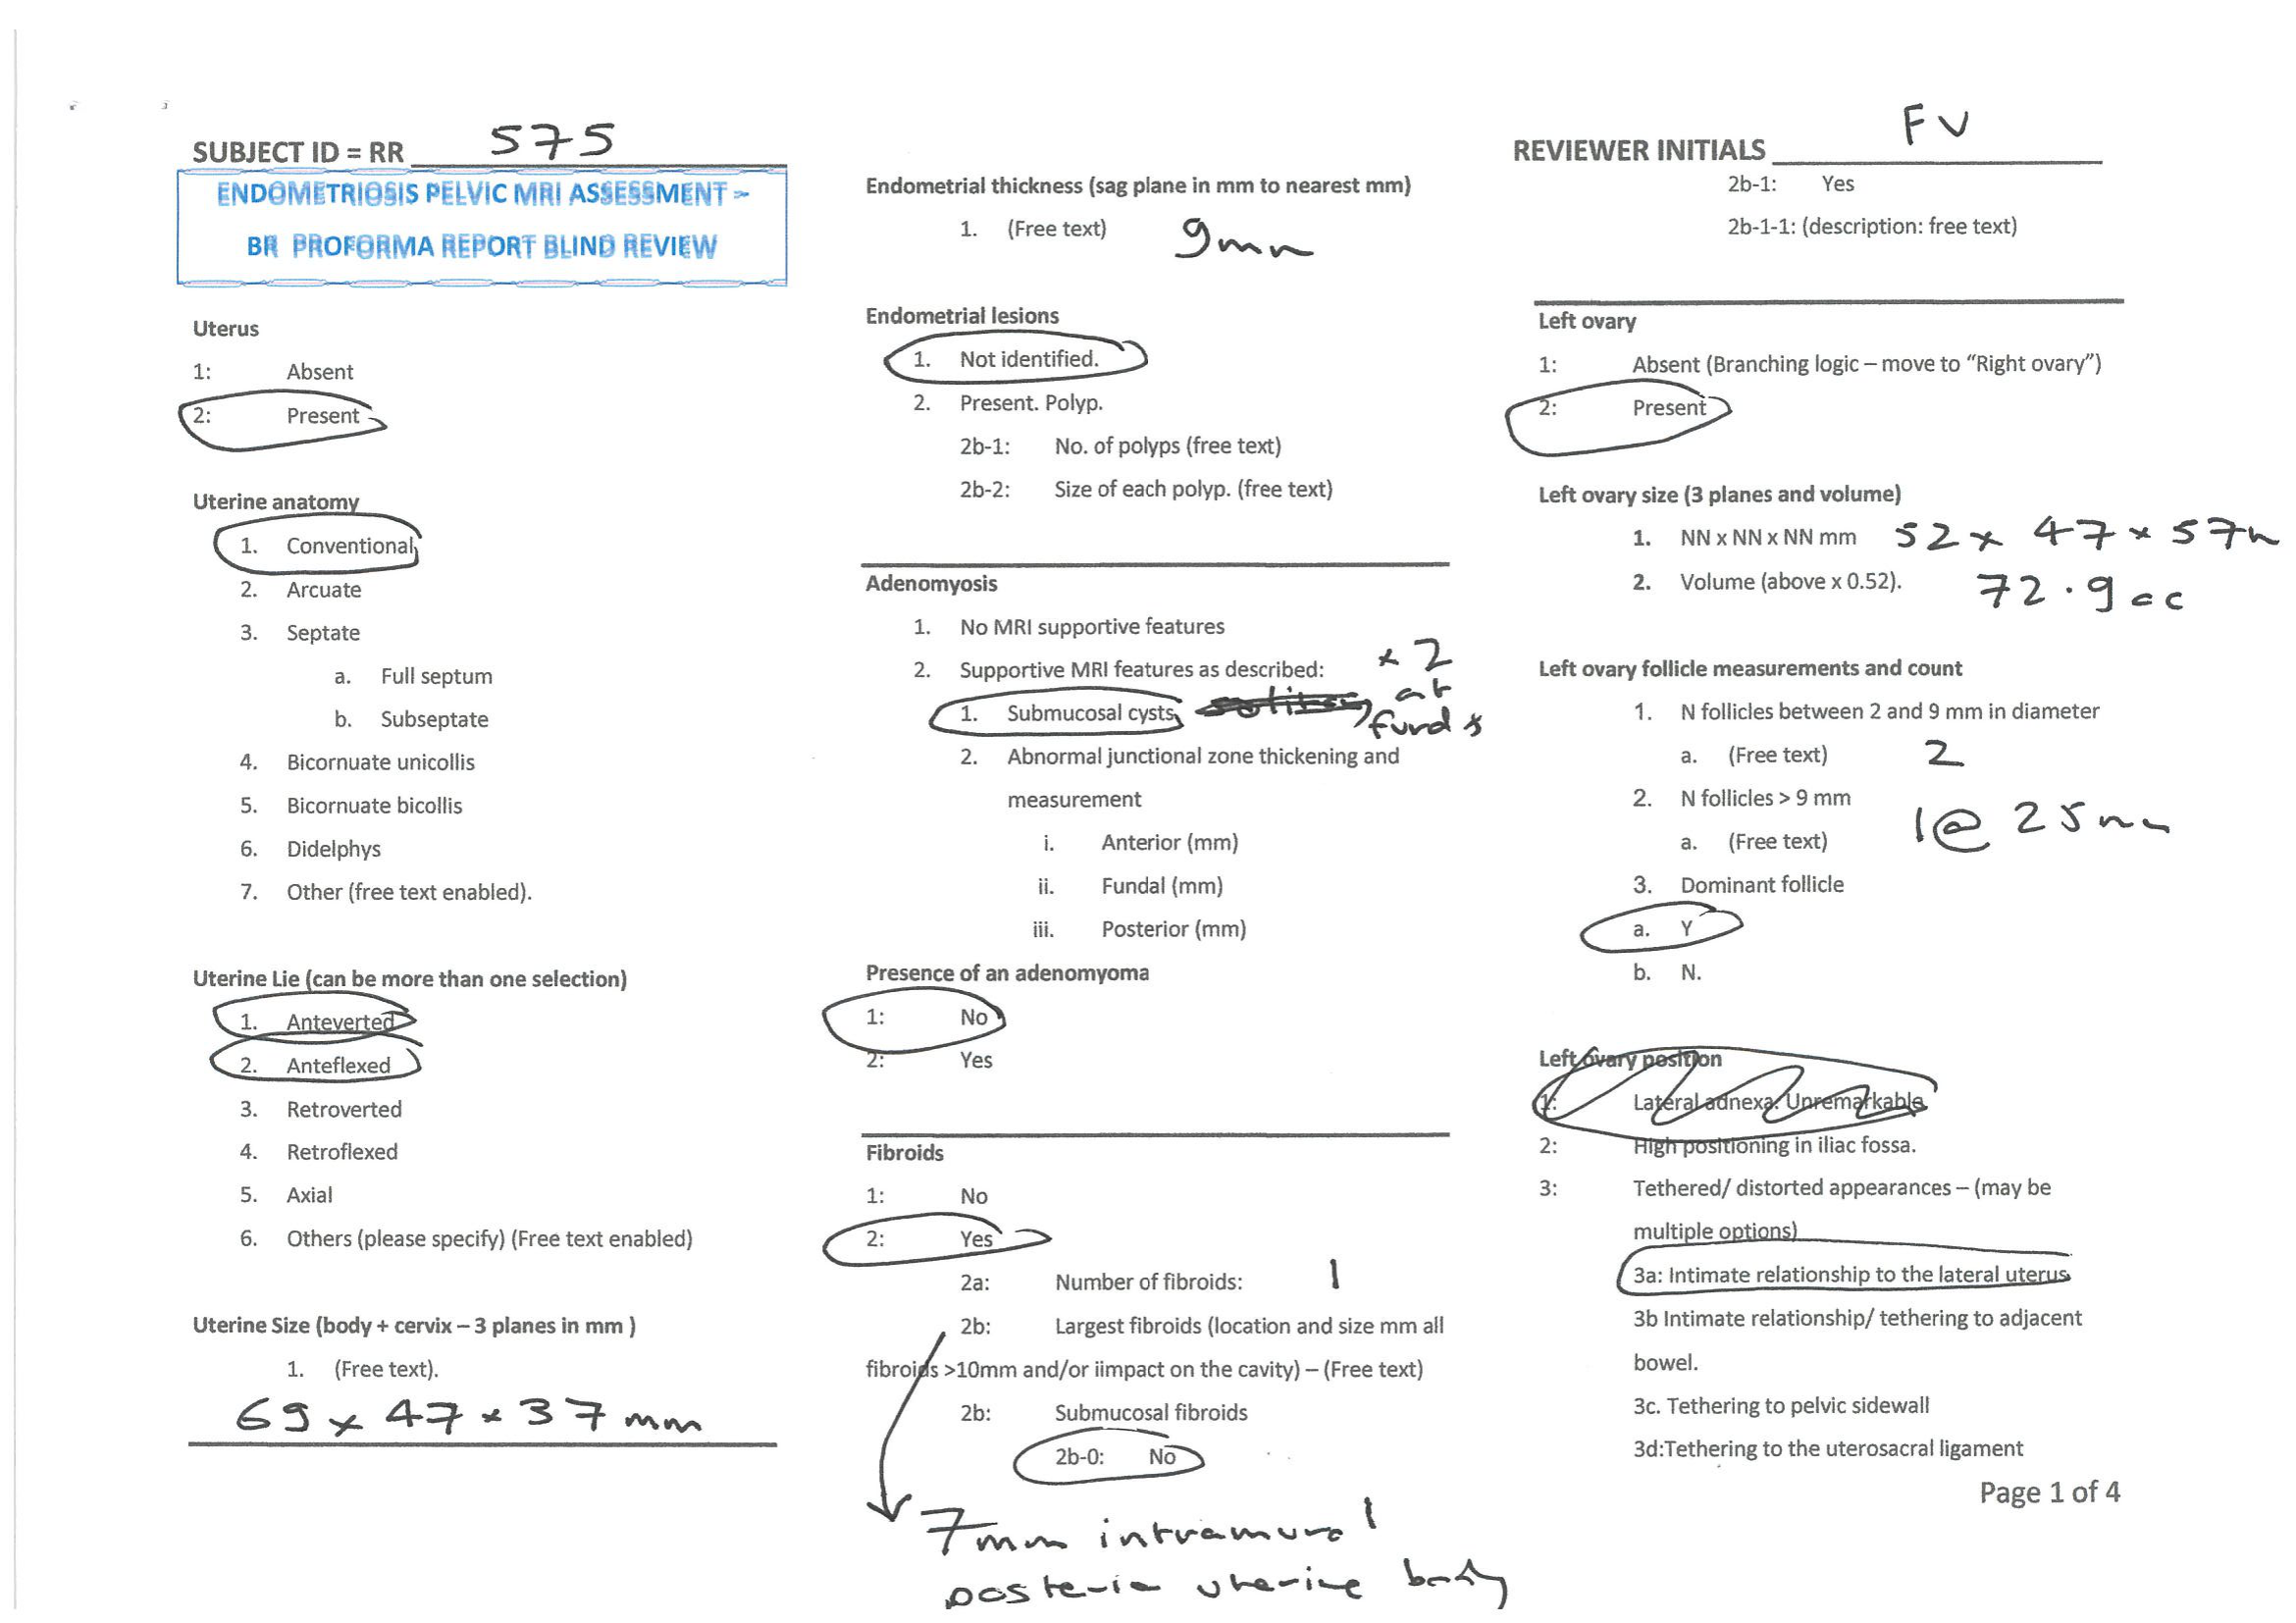 SUBJECT ID = RR 575
ENDOMETRIOSIS PELVIC MRI ASSESSMENT –
BR PROFORMA REPORT BLIND REVIEW
Uterus
1: Absent
2: Present
Uterine anatomy
1. Conventional
2. Arcuate
3. Septate
a. Full septum
b. Subseptate
4. Bicornuate unicollis
5. Bicornuate bicollis
6. Didelphys
7. Other (free text enabled).
Uterine Lie (can be more than one selection)
1. Anteverted
2. Anteflexed
3. Retroverted
4. Retroflexed
5. Axial
6. Others (please specify) (Free text enabled)
Uterine Size (body + cervix – 3 planes in mm )
1. (Free text).
69 x 47 x 37 mm
Endometrial thickness (sag plane in mm to nearest mm)
1. (Free text) 9mm
Endometrial lesions
1. Not identified.
2. Present. Polyp.
2b-1: No. of polyps (free text)
2b-2: Size of each polyp. (free text)
Adenomyosis
1. No MRI supportive features
2. Supportive MRI features as described: x 2
at
1. Submucosal cysts, fundus
2. Abnormal junctional zone thickening and
measurement
i. Anterior (mm)
ii. Fundal (mm)
iii. Posterior (mm)
Presence of an adenomyoma
1: No
2: Yes
Fibroids
1: No
2: Yes
2a: Number of fibroids: 1
2b: Largest fibroids (location and size mm all
fibroids >10mm and/or iimpact on the cavity) – (Free text)
2b: Submucosal fibroids
2b-0: No
7mm intramural
posterior uterine body
REVIEWER INITIALS FV
2b-1: Yes
2b-1-1: (description: free text)
Left ovary
1: Absent (Branching logic – move to “Right ovary”)
2: Present
Left ovary size (3 planes and volume)
1. NN x NN x NN mm 52 x 47 x 57m
2. Volume (above x 0.52). 72.9cc
Left ovary follicle measurements and count
1. N follicles between 2 and 9 mm in diameter
a. (Free text) 2
2. N follicles > 9 mm
1@ 25mm
a. (Free text)
3. Dominant follicle
a. Y
b. N.
Left ovary position
1: Lateral adnexa. Unremarkable.
2: High positioning in iliac fossa.
3: Tethered/ distorted appearances – (may be
multiple options)
3a: Intimate relationship to the lateral uterus
3b Intimate relationship/ tethering to adjacent
bowel.
3c. Tethering to pelvic sidewall
3d:Tethering to the uterosacral ligament
Page 1 of 4